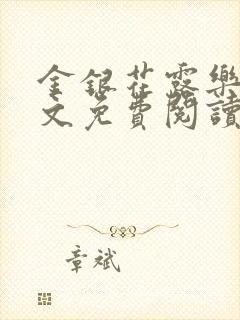 金銀花露樂
文免費閱讀
章斌